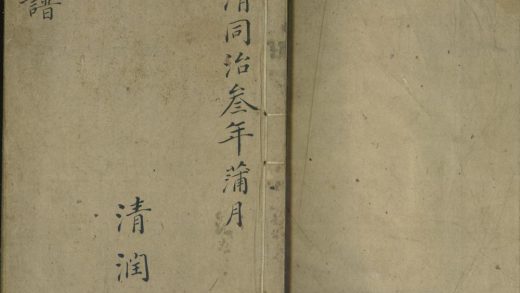 清同治叁年蒲月
清润
譜